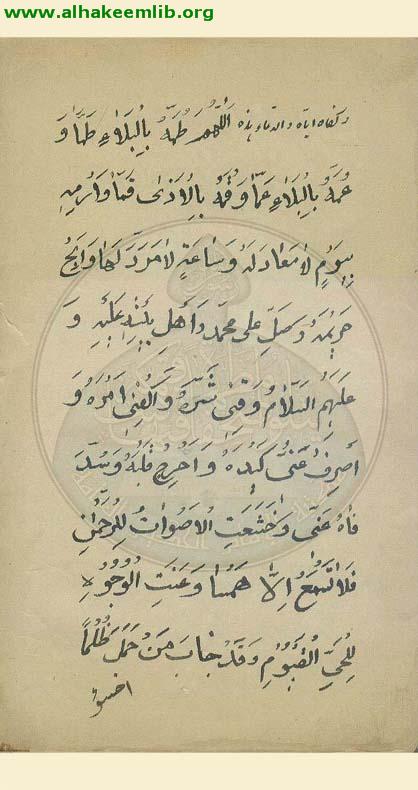 www.alhakeemlib.org
وكفاه اياه والدعاء هذه اَللّٰهُمَّ طُمَّهُ بِالْبَلَاءِ طَمًّا وَ
عُمَّهُ بِالْبَلَاءِ عَمًّا وَقُمَّهُ بِالْاَذٰى قَمًّا وَارْمِهِ
بِيَوْمٍ لَا مَعَادَ لَهُ وَسَاعَةٍ لَا مَرَدَّ لَهَا وَابِحْ
حَرِيمَهُ وَصَلِّ عَلٰى مُحَمَّدٍ وَاَهْلِ بَيْتِهِ عَلَيْهِ وَ
عَلَيْهِمُ السَّلَامُ وَقِنِى شَرَّهُ وَاكْفِنِى اَمْرَهُ وَ
اَصْرِفْ عَنِّى كَيْدَهُ وَاحْرِجْ قَلْبَهُ وَسُدَّ
فَاهُ عَنِّى وَخَشَعَتِ الْاَصْوَاتُ لِلرَّحْمٰنِ
فَلَا تَسْمَعُ اِلَّا هَمْسًا وَعَنَتِ الْوُجُوهُ
لِلْحَىِّ الْقَيُّومِ وَقَدْ خَابَ مَنْ حَمَلَ ظُلْمًا
اخسؤ